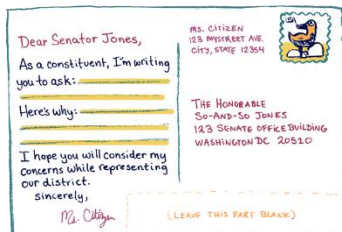 Dear Senator Jones,
As a constituent, I'm writing
you to ask:
Here's why:
I hope you will consider my
concerns while representing
our district.
sincerely,
Ms. Citizen
MS. CITIZEN
123 MYSTREET AVE.
CITY, STATE 12354
THE HONORABLE
SO-AND-SO JONES
123 SENATE OFFICE BUILDING
WASHINGTON DC 20510
(LEAVE THIS PART BLANK)